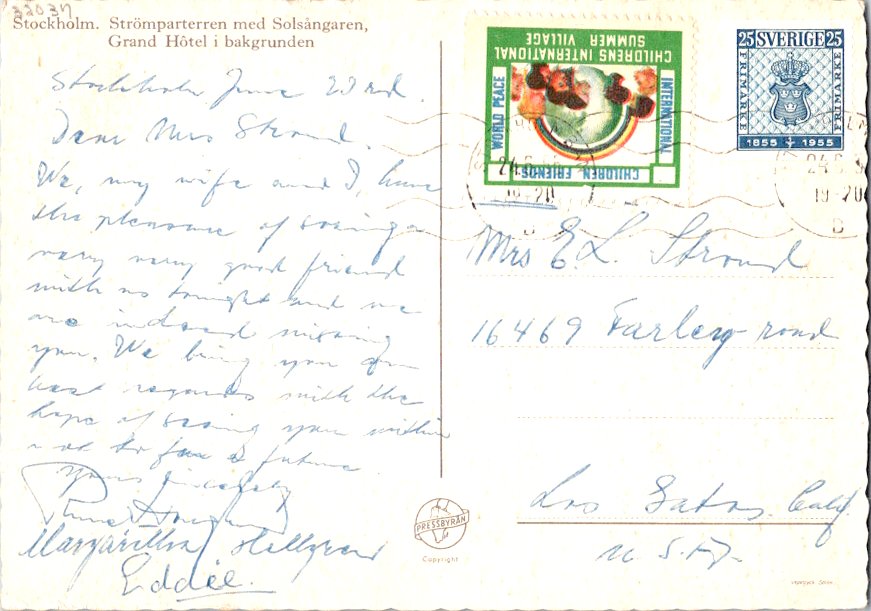 33037
Stockholm. Strömparterren med Solsångaren,
Grand Hôtel i bakgrunden
Stockholm June 23rd.
Dear Mrs Strond.
We, my wife and I, have
the pleasure of seeing a
very very good friend
with us tonight and we
are indeed missing
you. We bring you our
best regards with the
hope of seeing you within
not to far a future.
Yours sincerely
Margaretha Hellgren
Eddie.
CHILDRENS INTERNATIONAL
SUMMER VILLAGE
WORLD PEACE
INTERNATIONAL
CHILDREN FRIENDS
25 SVERIGE 25
FRIMÄRKE
FRIMÄRKE
1855 1955
24.6
19-20
24.6
19-20
B
Mrs E. L. Strond
16469 Farley road
Los Gatos, Calif.
U.S.A.
PRESSBYRÅN
Copyright